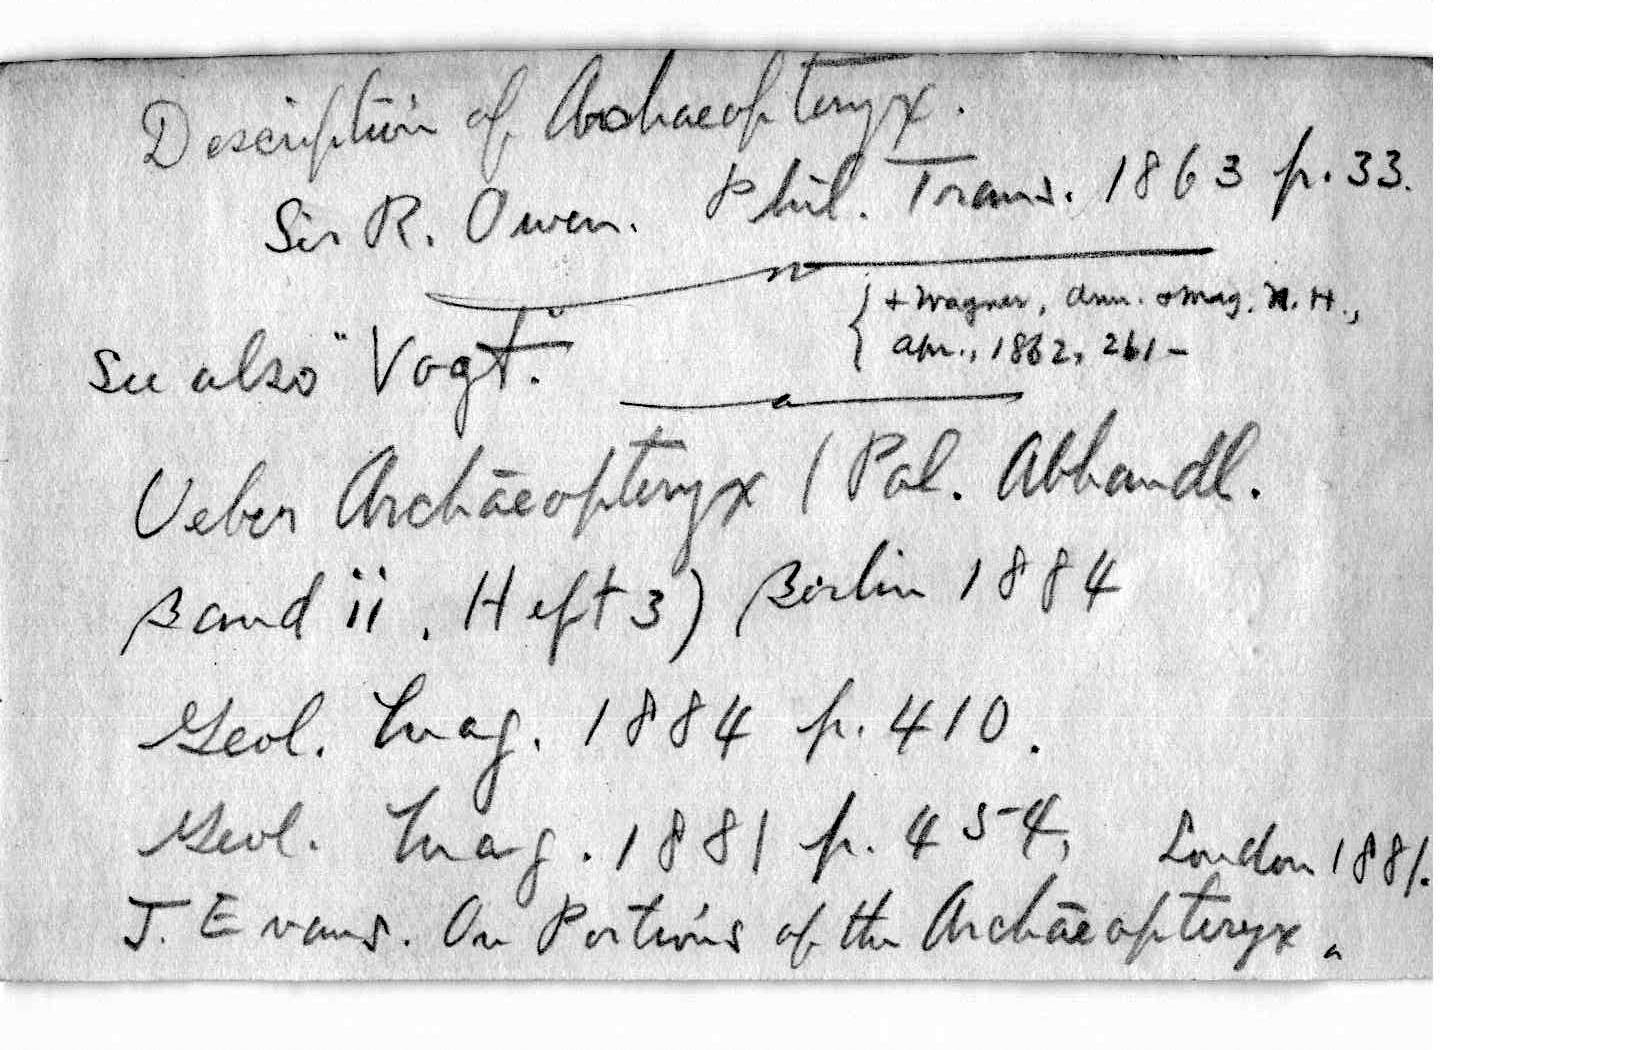 Description of Archaeopteryx.
Sir R. Owen. Phil. Trans. 1863 p. 33.
{ + Wagner, Ann. + Mag. N. H.,
Apr., 1862, 261-
See also "Vogt."
Ueber Archāeopteryx (Pal. Abhandl.
Band ii. Heft 3) Berlin 1884
Geol. Mag. 1884 p. 410.
Geol. Mag. 1881 p. 454, London 1881.
J. Evans. On Portions of the Archāeopteryx.